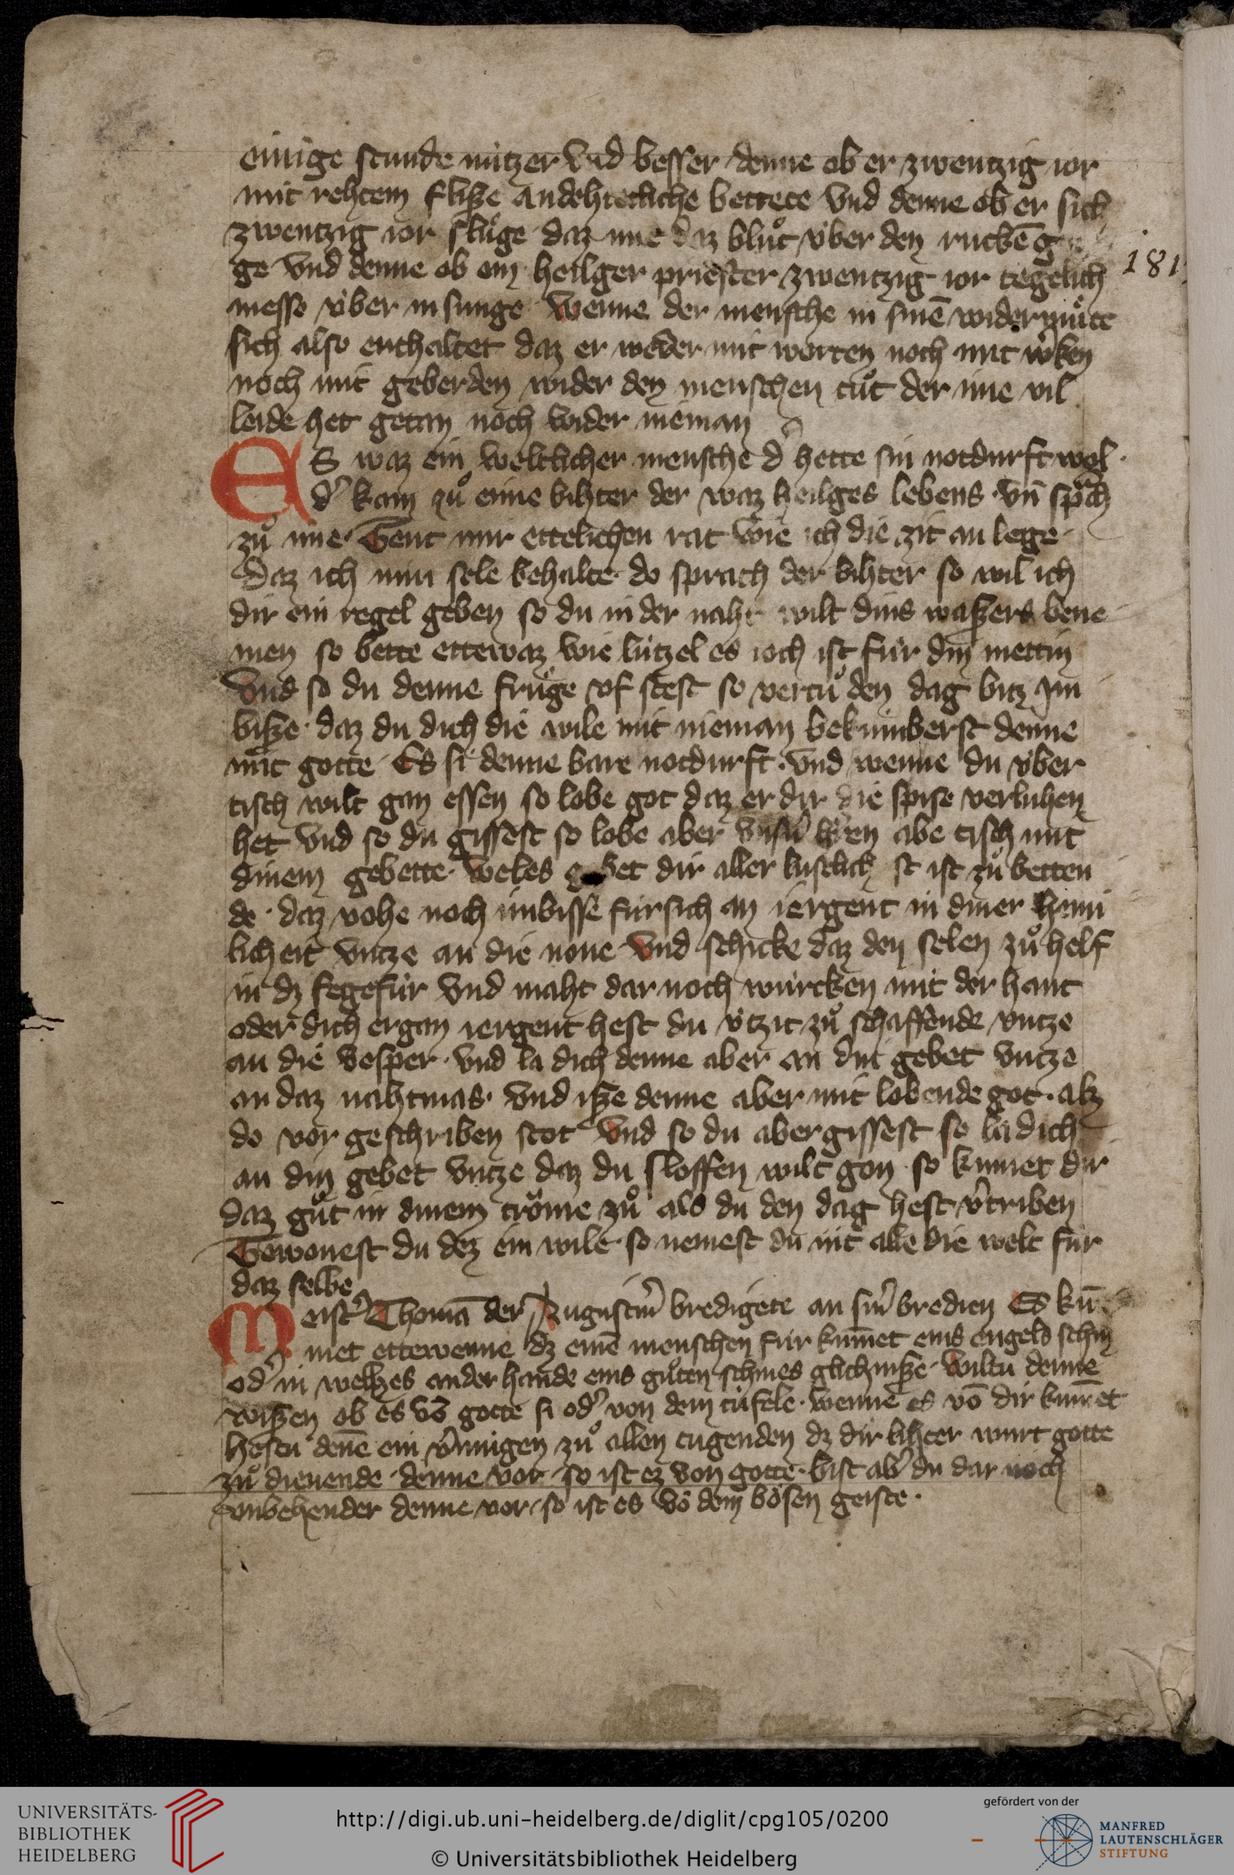 einige stunde nützer vnd besser denne ob er zwentzig ior
mit rehtem flisze andehtecliche bettete vnd denne ob er sich
zwentzig ior slu̍ge daz ime daz blůt über den ruckē
ge vnd denne ob ein heilger priester zwentzig ior tegelich
181
messe über in sunge wenne der mensche in sinē widermu̍te
sich also enthaltet daz er weder mit worten noch mit wʼken
noch mit geberden wider den menschen tůt der ime vil
leide het getan noch wider nieman
ES waz ein weltlicher mensche dʼ hette sin notdurft wol
dʼ kam zů eime bihter der waz heilges lebens vn̄ sprach
zů ime Gent mir ettelichen rat wie ich die zit an lege
daz ich min sele behalte do sprach der bihter so wil ich
dir ein regel geben so du in der naht wilt dins waszers bene
men so bette ettewaz wie lützel es ioch ist für din mettin
Vnd so du denne früge vf stest so vertů den dag bitz im
bisze daz du dich die wile mit nieman bekumberst denne
mit gotte Es si denne bare notdurft vnd wenne du über
tisch wilt gan essen so lobe got daz er dir die spise verluhen
het vnd so du gissest so lobe aber vnsʼn hʼren abe tisch mit
dinem gebette weles dir aller lustlich st ist zů betten
de daz vohe noch imbisse fürsich an iergent in diner heim
licheit vntze an die none vnd schicke daz den selen zů helf
in dz fegefür vnd maht dar noch würcken mit der hant
oder dich ergan iergent hest du ützit zů schaffende vntze
an die vesper vnd la dich denne aber an din gebet vntze
an daz nahtmas vnd isze denne aber mit lobende got alz
do vor geschriben stot vnd so du aber gissest so la dich
an din gebet vntze daz du sloffen wilt gon so kumet dir
daz gůt in dinem tröme zů als du den dag hest vʼtriben
Gewonest du dez ein wile so nemest du nit alle die welt für
daz selbe
Meistʼ Thomā der Augustinʼ bredigete an sinʼ bredien Es kū
met ettewenne dz einē menschen für kum̄et eins engels schin
odʼ in welhes ander hande eins gůten schines glichnisze wiltu denne
wiszen ob es vō gotte si odʼ von dem tüfele wenne es vō dir kum̄et
hestu denē ein vʼnnigen zů allen tugenden dz dir lihter wurt gotte
zů dienende denne vor so ist ez von gotte bist abʼ du dar noch
vnbehender denne vor so ist es vō dem bösen geiste
UNIVERSITÄTS-
BIBLIOTHEK
HEIDELBERG
http://digi.ub.uni-heidelberg.de/diglit/cpg105/0200
© Universitätsbibliothek Heidelberg
gefördert von der
MANFRED
LAUTENSCHLÄGER
STIFTUNG